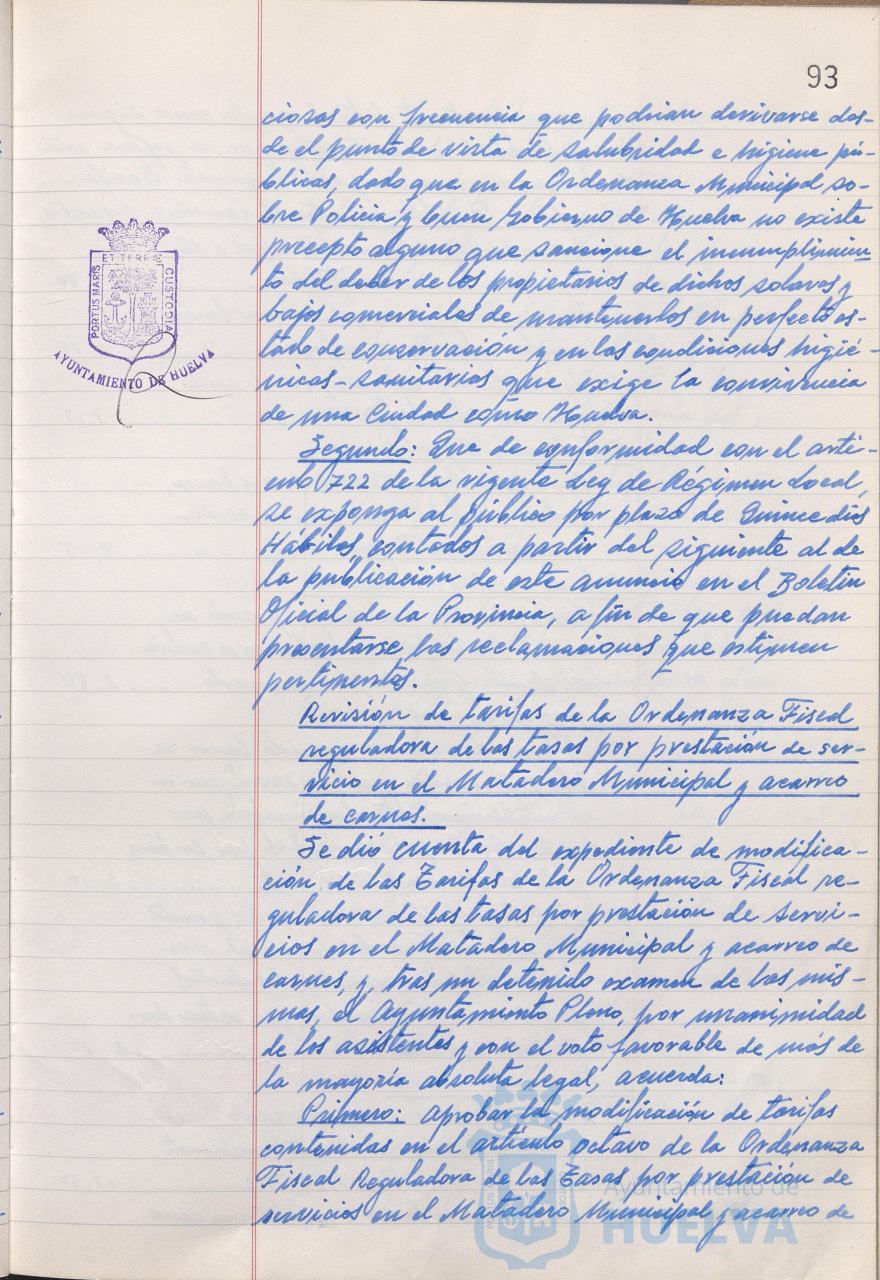 93
ciosas con frecuencia que podrian derivarse des-
de el punto de vista de salubridad e higiene pú-
blicas, dado que en la Ordenanza Municipal so-
bre Policia y buen Gobierno de Huelva no existe
precepto alguno que sancione el incumplimien
to del deber de los propietarios de dichos solares y
bajos comerciales de mantenerlos en perfecto es-
tado de conservación y en las condiciones higié-
nicas-sanitarias que exige la convivencia
de una Ciudad como Huelva.
Segundo: Que de conformidad con el arti-
culo 722 de la vigente Ley de Régimen Local,
se exponga al público por plazo de Quince días
Hábiles, contados a partir del siguiente al de
la publicación de este anuncio en el Boletin
Oficial de la Provincia, a fin de que puedan
presentarse las reclamaciones que estimen
pertinentes.
Revisión de tarifas de la Ordenanza Fiscal
reguladora de las tasas por prestación de ser-
vicio en el Matadero Municipal y acarreo
de carnes.
Se dió cuenta del expediente de modifica-
ción de las Tarifas de la Ordenanza Fiscal re-
guladora de las tasas por prestación de servi-
cios en el Matadero Municipal y acarreo de
carnes, y, tras un detenido examen de las mis-
mas, el Ayuntamiento Pleno, por unanimidad
de los asistentes y con el voto favorable de más de
la mayoría absoluta legal, acuerda:
Primero: Aprobar la modificación de tarifas
contenidas en el artículo octavo de la Ordenanza
Fiscal Reguladora de las Tasas por prestación de
servicios en el Matadero Municipal y acarreo de
PORTUS MARIS ET TERRÆ CUSTODIA
AYUNTAMIENTO DE HUELVA
Ayuntamiento de
HUELVA